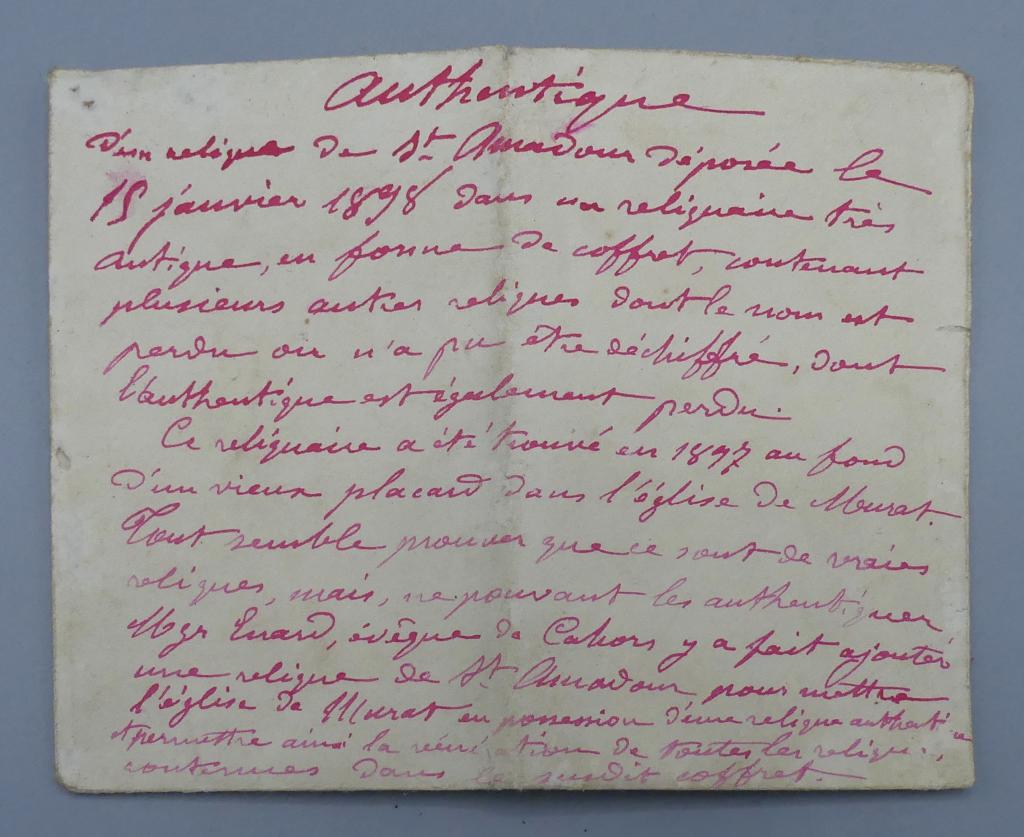 Authentique
d'un relique de St Amadour déposée le
15 janvier 1898 dans un reliquaire très
antique, en forme de coffret, contenant
plusieurs autres reliques dont le nom est
perdu ou n'a pu être déchiffré, dont
l'authentique est également perdu.
Ce reliquaire a été trouvé en 1897 au fond
d'un vieux placard dans l'église de Murat.
Tout semble prouver que ce sont de vraies
reliques, mais, ne pouvant les authentiquer
Mgr Enard, évêque de Cahors y a fait ajouter
une relique de St Amadour pour mettre
l'église de Murat en possession d'une relique authentique
et permettre ainsi la vénération de toutes les reliques
contenues dans le susdit coffret.